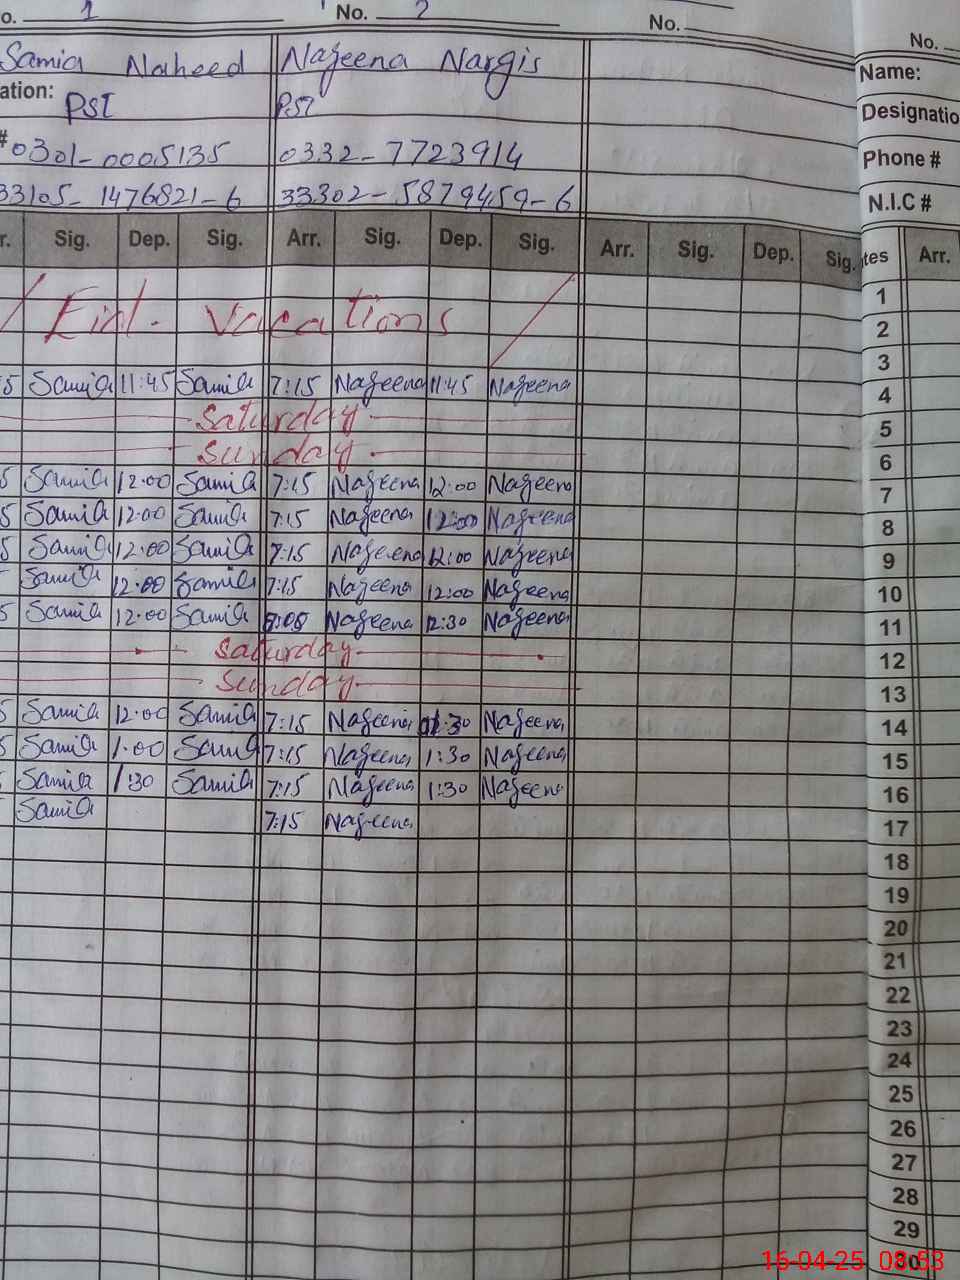 o. 1 No. 2 No. No.
Samia Naheed Nazeena Nargis Name:
ation: PST PST Designatio
# 0301-0005135 0332-7723914 Phone #
33105-1476821-6 33302-5879459-6 N.I.C #
r. Sig. Dep. Sig. Arr. Sig. Dep. Sig. Arr. Sig. Dep. Sig. tes Arr.
1
Eid. Vacations 2
3
5 Samia 11:45 Samia 7:15 Nazeena 11:45 Nazeena 4
Saturday 5
Sunday 6
5 Samia 12:00 Samia 7:15 Nazeena 12:00 Nazeena 7
5 Samia 12:00 Samia 7:15 Nazeena 12:00 Nazeena 8
5 Samia 12:00 Samia 7:15 Nazeena 12:00 Nazeena 9
Samia 12:00 Samia 7:15 Nazeena 12:00 Nazeena 10
5 Samia 12:00 Samia Nazeena 12:30 Nazeena 11
Saturday 12
Sunday 13
5 Samia 12:00 Samia 7:15 Nazeena Nazeena 14
5 Samia 1:00 Samia 7:15 Nazeena 1:30 Nazeena 15
Samia 1:30 Samia 7:15 Nazeena 1:30 Nazeena 16
Samia 7:15 Nazeena 17
18
19
20
21
22
23
24
25
26
27
28
29
30
16-04-25 08:53